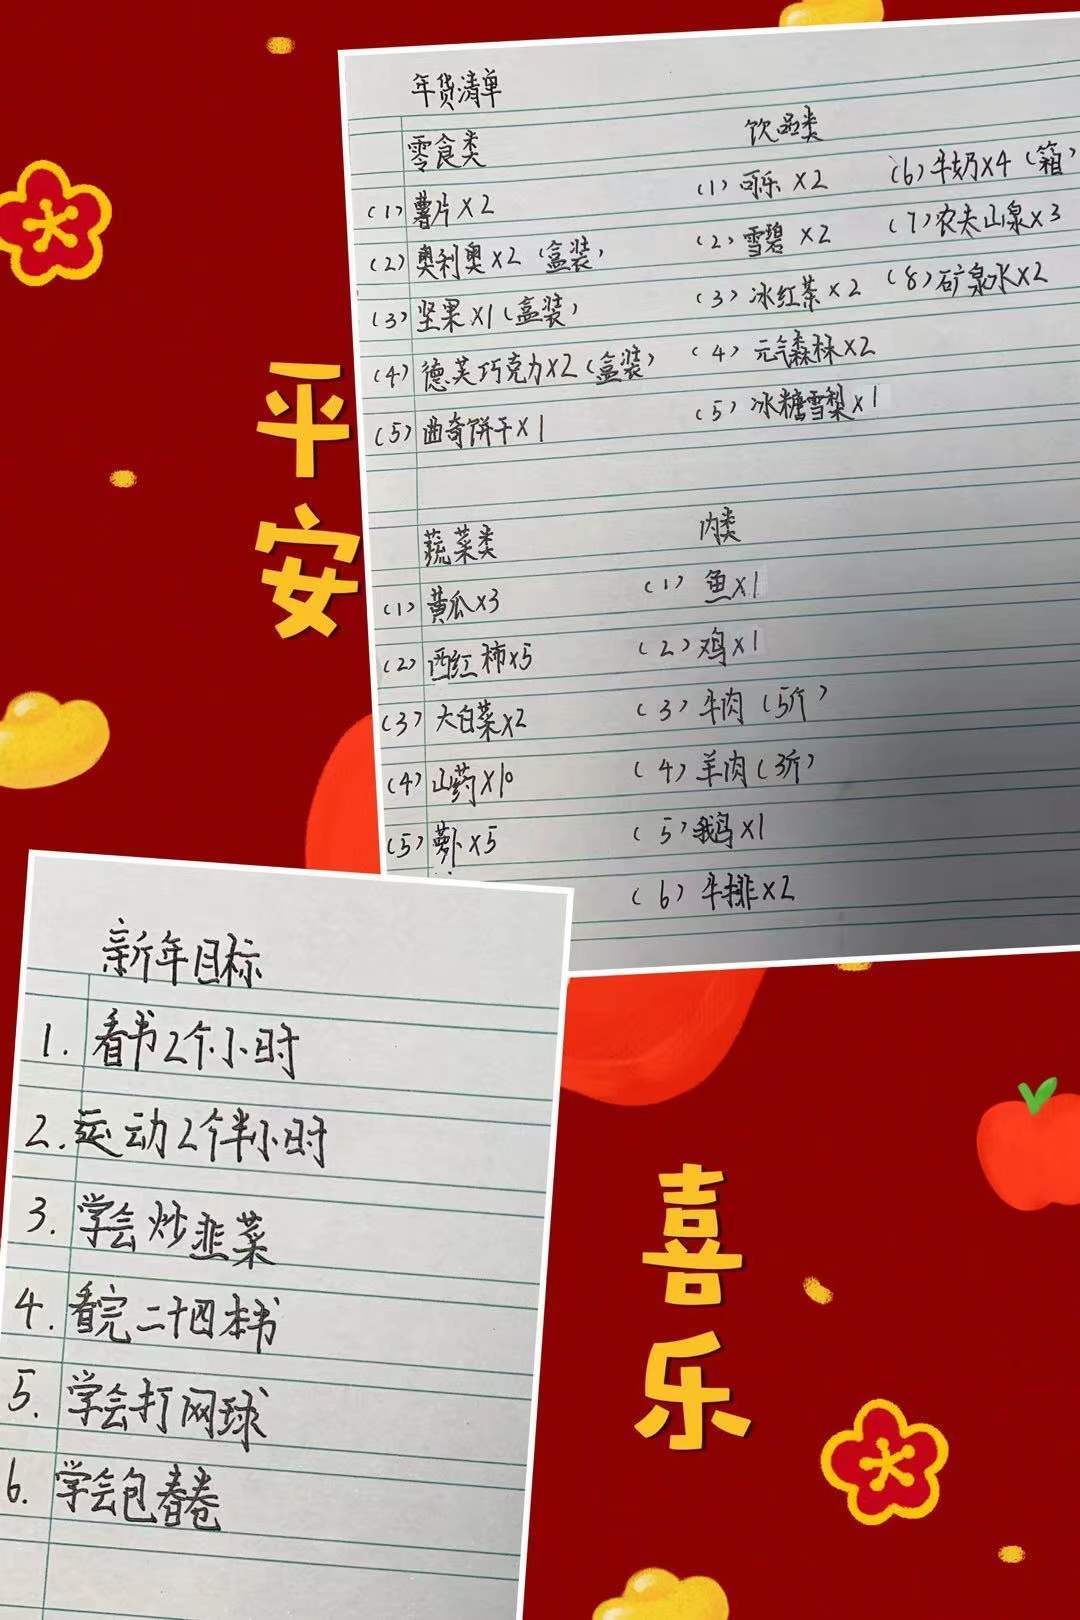 年货清单
零食类
(1)薯片×2
(2)奥利奥×2(盒装)
(3)坚果×1(盒装)
(4)德芙巧克力×2(盒装)
(5)曲奇饼干×1
饮品类
(1)可乐×2
(2)雪碧×2
(3)冰红茶×2
(4)元气森林×2
(5)冰糖雪梨×1
(6)牛奶×4(箱)
(7)农夫山泉×3
(8)矿泉水×2
蔬菜类
(1)黄瓜×3
(2)西红柿×5
(3)大白菜×2
(4)山药×10
(5)萝卜×5
肉类
(1)鱼×1
(2)鸡×1
(3)牛肉(5斤)
(4)羊肉(3斤)
(5)鹅×1
(6)牛排×2
平安
新年目标
1.看书2个小时
2.运动2个半小时
3.学会炒韭菜
4.看完二十四本书
5.学会打网球
6.学会包春卷
喜乐